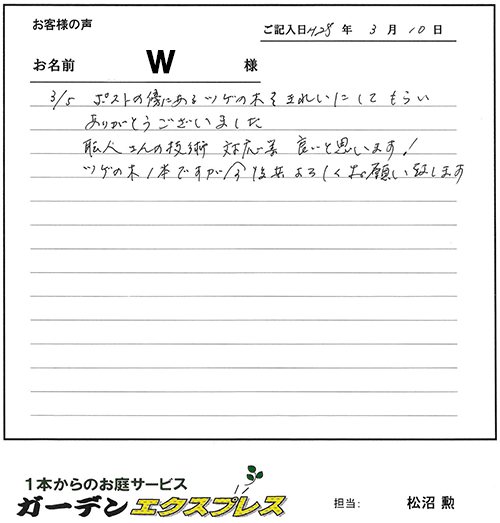 お客様の声
ご記入日 H28 年 3 月 10 日
お名前 W 様
3/5 ポストの傍にあるツゲの木をきれいにしてもらい
ありがとうございました
職人さんの技術 対応 良いと思います!
ツゲの木1本ですが今後共よろしくお願い致します
1本からのお庭サービス
ガーデンエクスプレス
担当: 松沼 勲